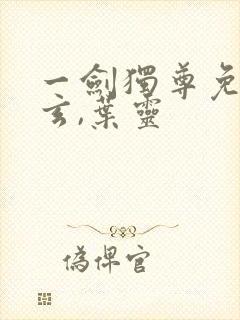 一劍獨尊免
玄,葉靈
偽俾官